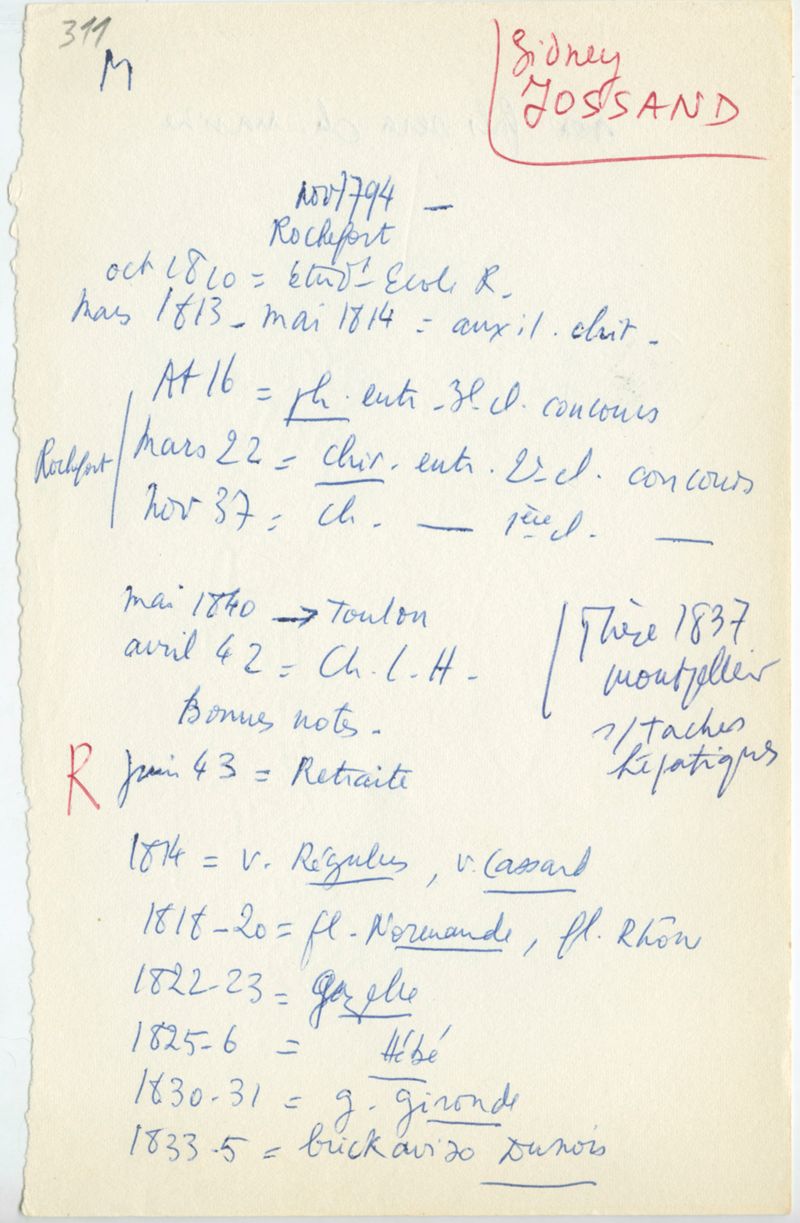 311
M
Sidney
JOSSAND
nov 1794 —
Rochefort
oct 1810 = Etudt Ecole R.
Mars 1813 - mai 1814 = auxil. chir.
16 = ph. entr. 3e cl. concours
Rochefort
Mars 22 = chir. entr. 2e cl. concours
Nov 37 = ch. — 1ère cl. —
mai 1840 → Toulon
avril 42 = Ch. L. H.
Bonnes notes.
Thèse 1837
Montpellier
s/taches
hépatiques
R Juin 43 = Retraite
1814 = v. Régulus, v. Cassard
1818-20 = fl. Normande, fl. Rhône
1822-23 = Gazelle
1825-6 = Hébé
1830-31 = g. Gironde
1833-5 = brick aviso Dunois